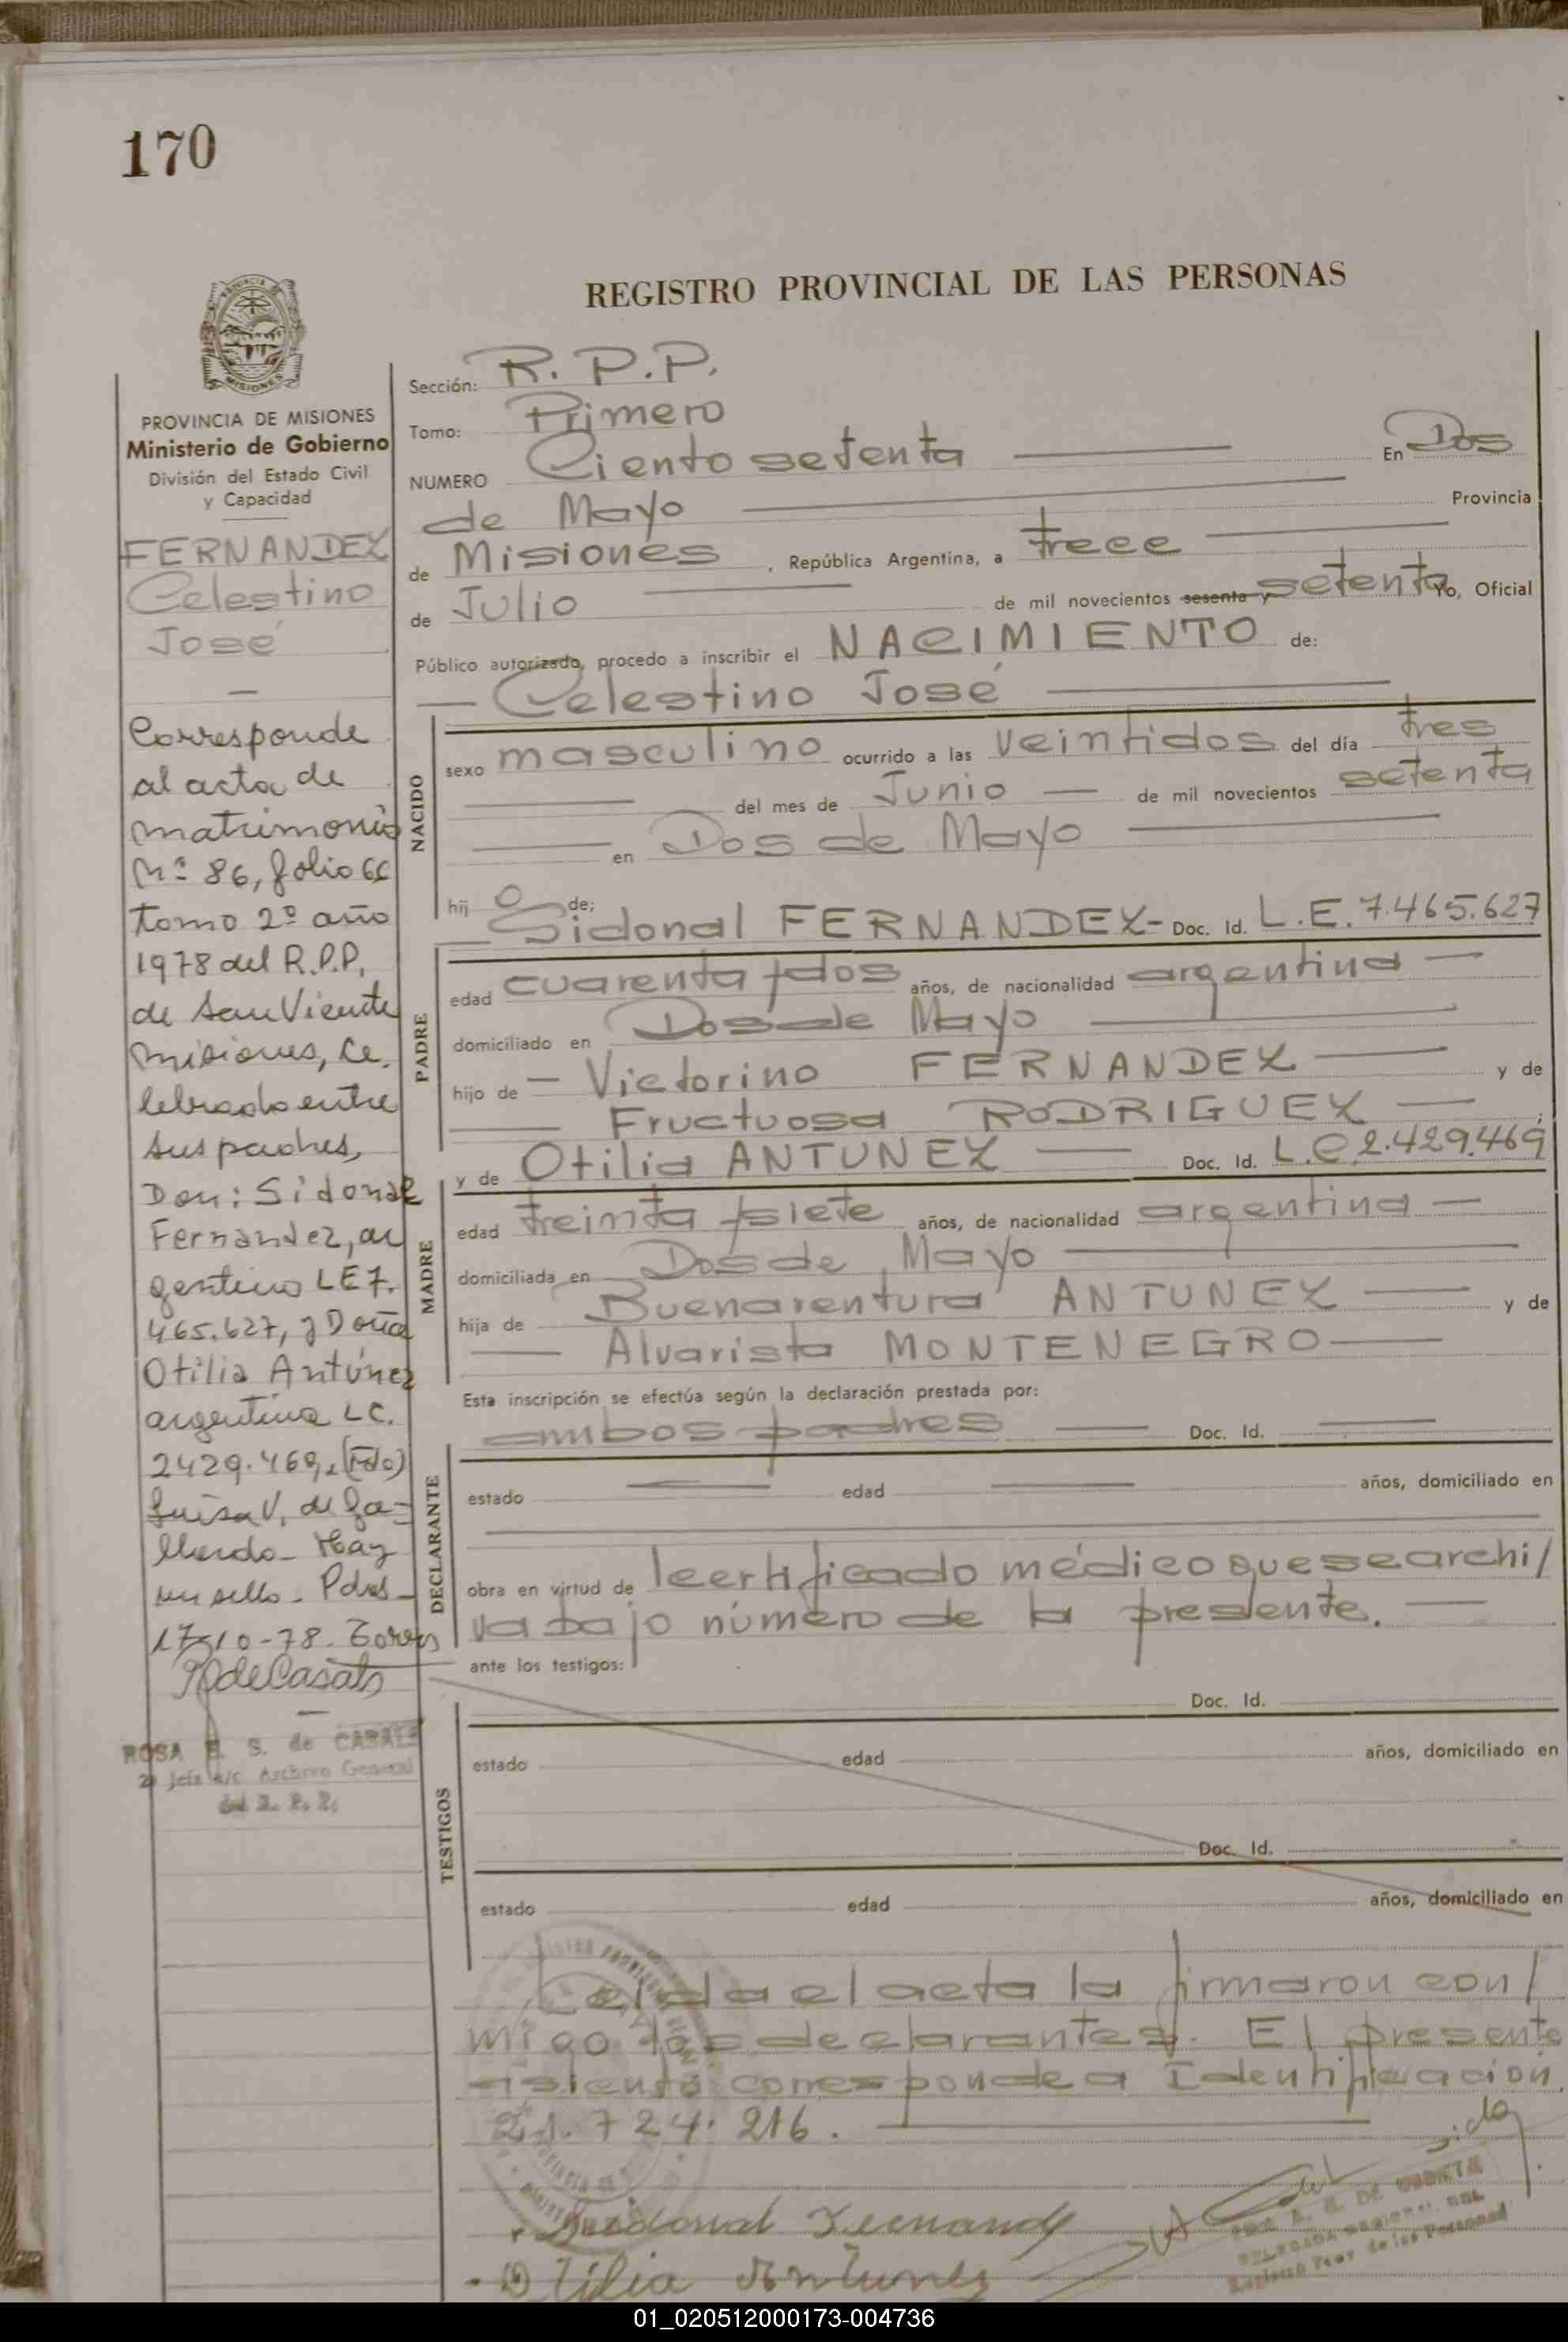 170
REGISTRO PROVINCIAL DE LAS PERSONAS
MISIONES
PROVINCIA DE MISIONES
Ministerio de Gobierno
División del Estado Civil
y Capacidad
FERNANDEZ
Celestino
José
Corresponde
al acta de
matrimonio
Nº 86, folio 66
tomo 2º año
1978 del R.P.P.
de San Vicente
Misiones, Ce.
lebrado entre
sus padres,
Don: Sidonal
Fernández, ar
gentino LE 7.
465.627, y Doña
Otilia Antúnez
argentina LC.
2429.469, (Fdo)
Luisa V. de Ga-
llardo - Hay
un sello - Pdas -
17-10-78. Torres
R de Casals
ROSA E. S. de CASALS
2º Jefe a/c Archivo General
del R. P. P.
Sección: R. P. P.
Tomo: Primero
NUMERO Ciento setenta En Dos
de Mayo Provincia
de Misiones, República Argentina, a trece
de Julio de mil novecientos sesenta y setenta Yo, Oficial
Público autorizado, procedo a inscribir el NACIMIENTO de:
Celestino José
NACIDO
sexo masculino ocurrido a las veintidos del día tres
del mes de Junio de mil novecientos setenta
en Dos de Mayo
hij o de:
Sidonal FERNANDEZ - Doc. Id. L.E. 7.465.627
PADRE
edad cuarenta y dos años, de nacionalidad argentina
domiciliado en Dos de Mayo
hijo de Victorino FERNANDEZ y de
Fructuosa RODRIGUEZ
y de Otilia ANTUNEZ Doc. Id. L.C. 2.429.469
MADRE
edad treinta y siete años, de nacionalidad argentina
domiciliada en Dos de Mayo
hija de Buenaventura ANTUNEZ y de
Alvarista MONTENEGRO
Esta inscripción se efectúa según la declaración prestada por:
ambos padres Doc. Id.
DECLARANTE
estado edad años, domiciliado en
obra en virtud de certificado médico que se archi/
va bajo número de la presente.
ante los testigos:
Doc. Id.
TESTIGOS
estado edad años, domiciliado en
Doc. Id.
estado edad años, domiciliado en
Leida el acta la firmaron con/
migo los declarantes. El presente
asiento corresponde a Identificación
21.724.216.
Sidonal Fernandez
Otilia Antunez
Registro Prov. de las Personas
01_020512000173-004736